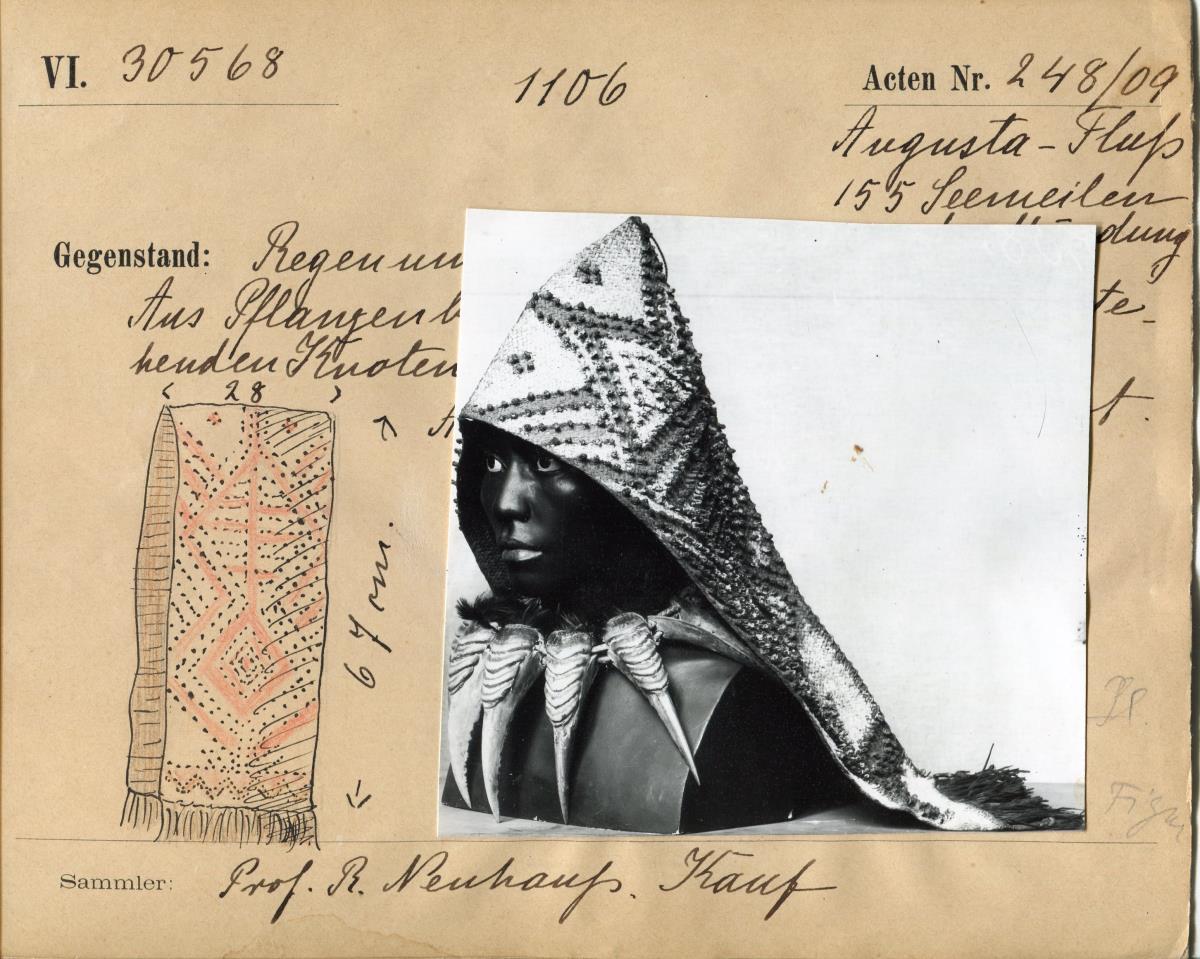 VI. 30568
1106
Acten Nr. 248/09
Augusta-Fluß
155 Seemeilen
dung
Gegenstand: Regenum
Aus Pflanzenb
te-
henden Knoten
t.
28
67 cm.
Sammler: Prof. R. Neuhauß. Kauf